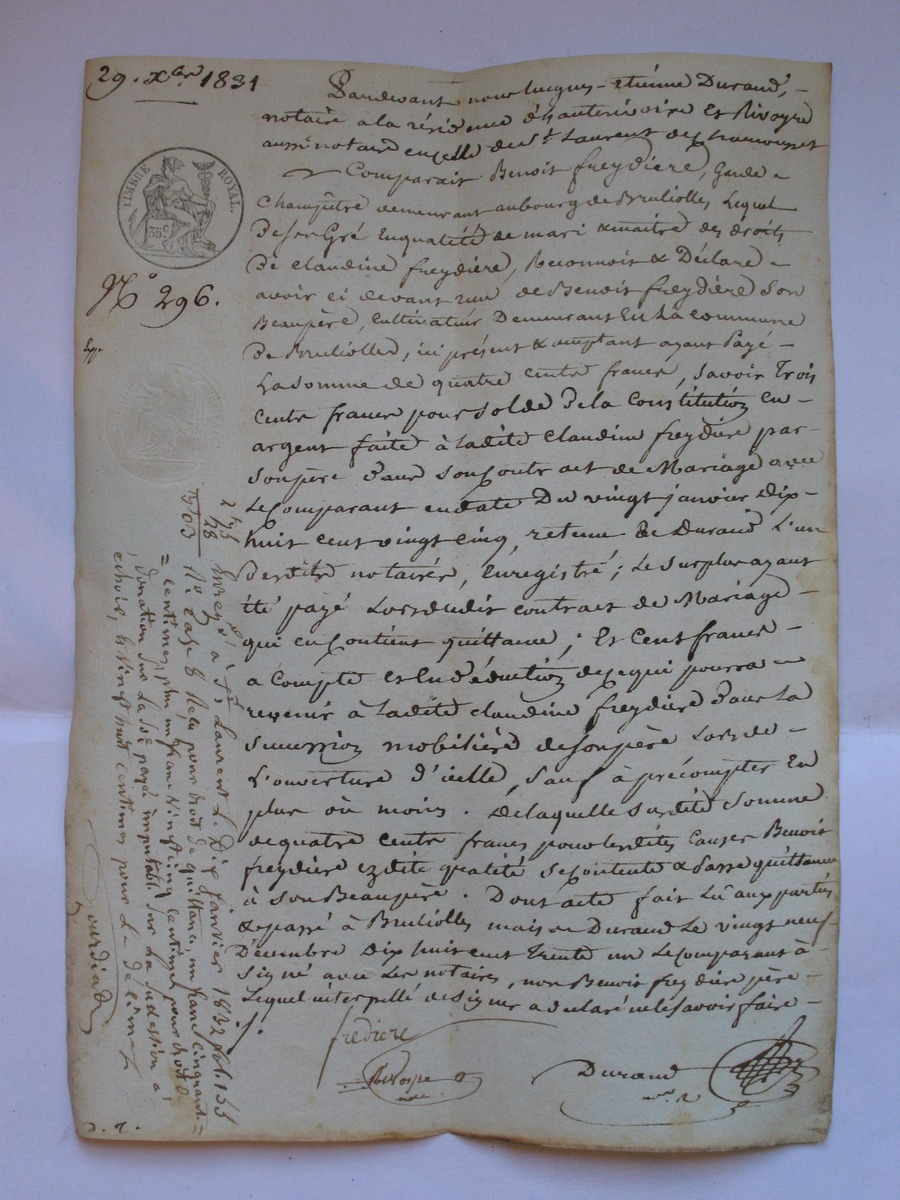 29. Xbre 1831
Pardevant nous Jacques-etiénne Durand,
notaire a la résidence d'hauterivoire Et Rivoyre
aussi notaire en celle de St. Laurent de chamousset
Comparait Benoit freydiere, Garde
Champêtre demeurant au bourg de Brullioles, Lequel
De son Gré En qualité de mari & maitre des droits
De Claudine freydiere, Reconnoit & Déclare
avoir ci devant reçu de Benoit freydière Son
Beaupère, Cultivateur Demeurant En La Commune
de Brullioles, ici présent & comptant ayant Payé
La Somme de quatre cents francs, Savoir Trois
Cents francs pour solde De la Constitution En
argent faite à Ladite Claudine freydiere par
son père Dans Son Contract de Mariage avec
Le Comparant en date Du vingt janvier Dix
huit cent vingt cinq, retenu De Durand L'un
Desdits notaires, Enregistré; Le surplus ayant
été payé Lors dudit contract de Mariage
qui en contient quittance; Et Cent francs
a Compte et En Déduction de ce qui pourra
revenir à Ladite Claudine freydiere Dans La
Succession mobilière de son père Lors de
L'ouverture d'icelle, Sauf à précompter En
plus ou moins. De laquelle Susdite Somme
de quatre cents francs pour lesdites Causes Benoit
freydiere ezdite qualité se Contente & Passe quittance
à Son Beaupère. Dont acte fait Lû aux parties
& passé à Brullioles maison Durand Le vingt neuf
Décembre Dix huit cent Trente un Le Comparant à
Signé avec Les notaires, non Benoit freydiere père
Lequel interpellé de Signer a déclaré ne le Savoir faire
frediere
Rivoyre
nore
Durand
TIMBRE ROYAL.
35 c.
No 296.
Enregé à St Laurent Le Dix Janvier 1832 fol. 155
Ro Case 8 Reçu pour droit de quittance, un franc cinquante
centimes, plus un franc vingt cinq centimes pour droit de
donation Sur La Soe payée imputable Sur La Succession à
échoir, & vingt huit centimes pour Le décime